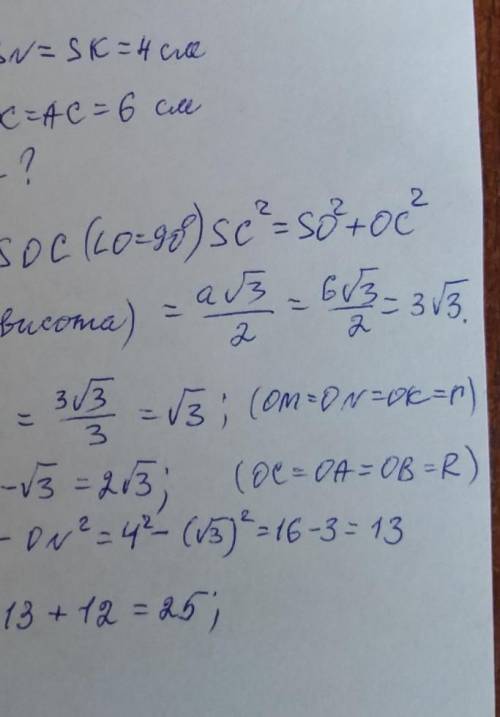 SN = SK = 4 см
C = AC = 6 см
- ?
SOC (LO=90°) SC² = SO² + OC²
висота) = a√3/2 = 6√3/2 = 3√3.
= 3√3/3 = √3; (OM=ON=OK=r)
-√3 = 2√3; (OC=OA=OB=R)
- ON² = 4² - (√3)² = 16 - 3 = 13
13 + 12 = 25;